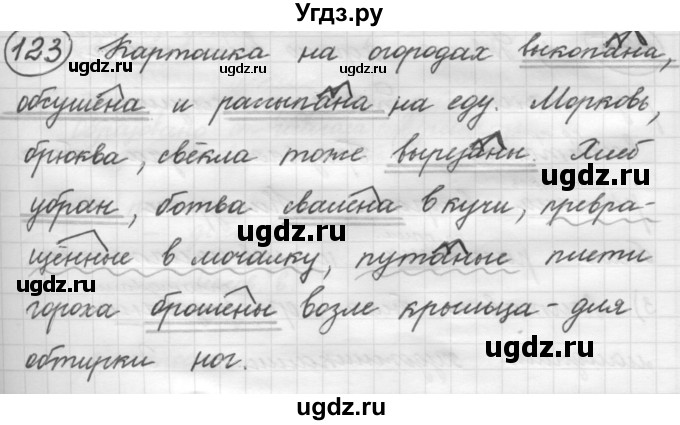 Угдз.ру
123 Картошка на огородах выкопана,
ugdz.ru ugdz.ru
обсушена и рассыпана на еду. Морковь,
ugdz.ru
брюква, свёкла тоже вырезаны. Хлеб
ugdz.ru
убран, ботва свалена в кучи, превра-
ugdz.ru
щённые в мочалку, путаные плети
ugdz.ru ugdz.ru
гороха брошены возле крыльца - для
ugdz.ru
обтирки ног.
ugdz.ru
ugdz.ru